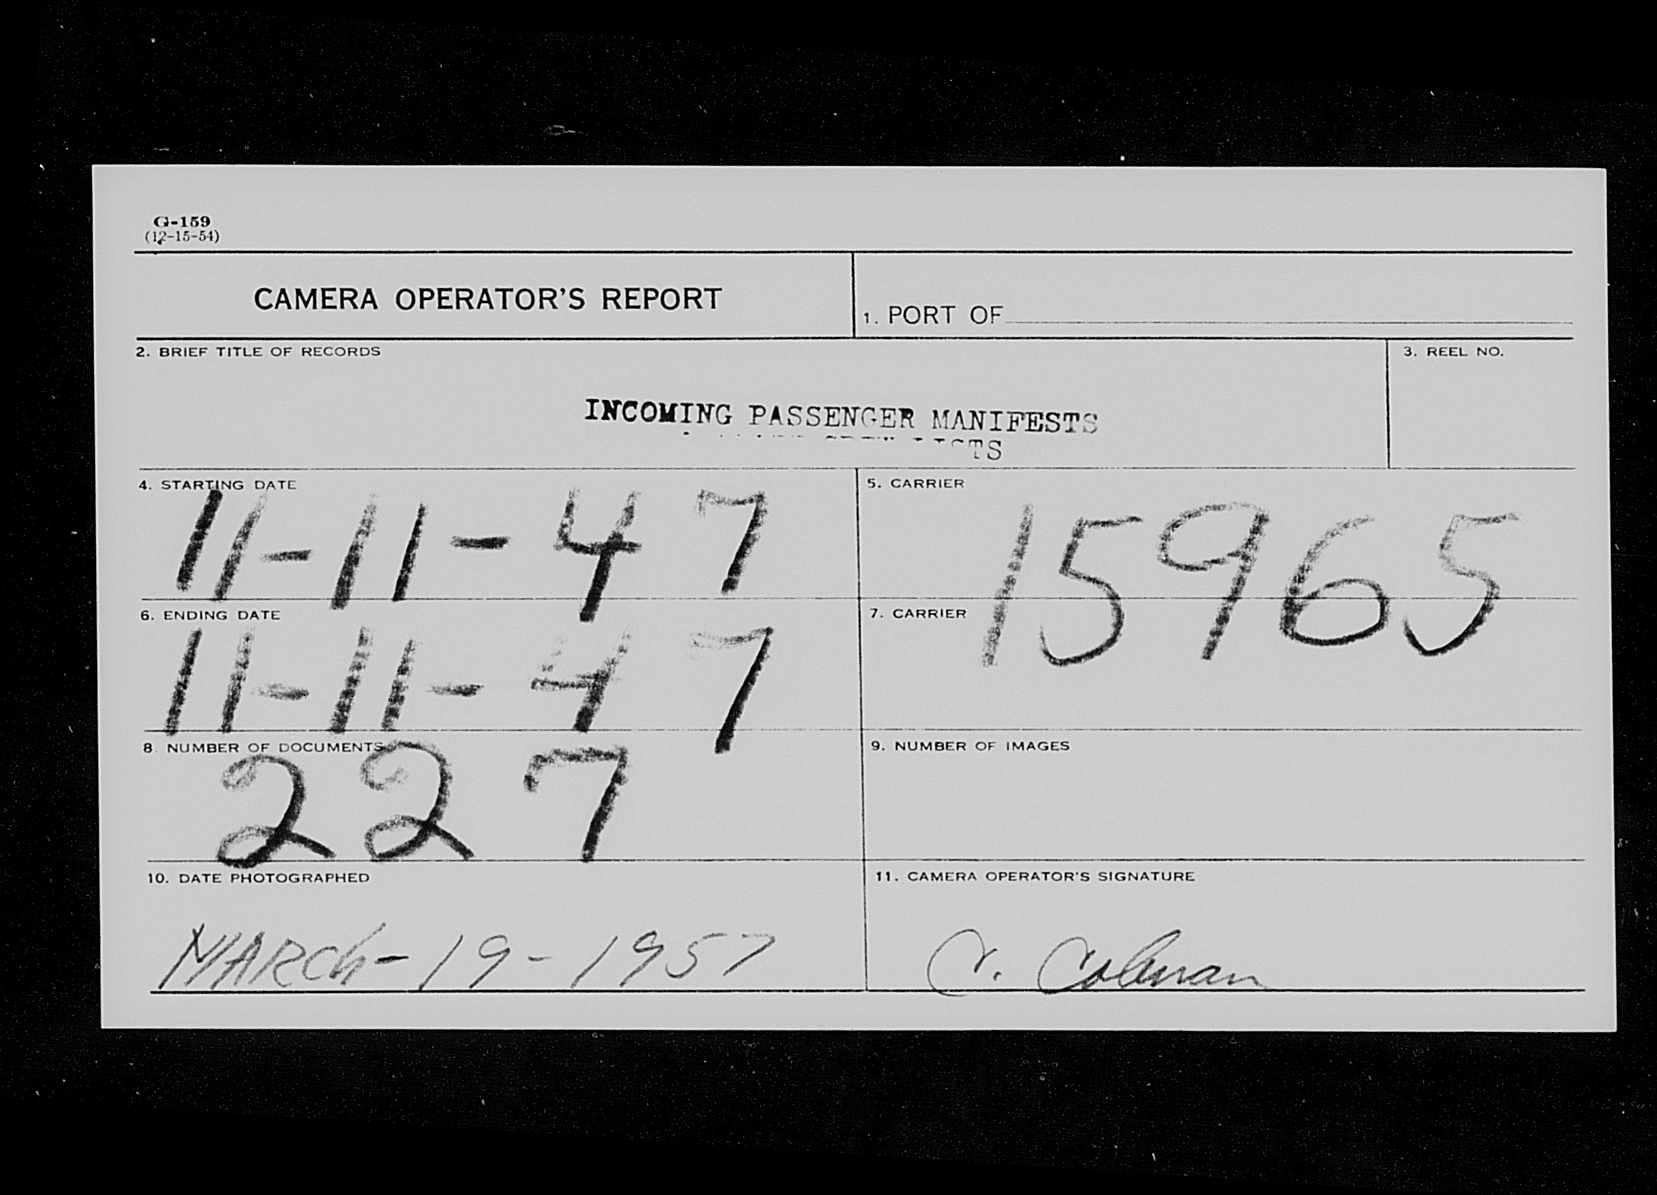 G-159
(12-15-54)
CAMERA OPERATOR'S REPORT
1. PORT OF
2. BRIEF TITLE OF RECORDS
3. REEL NO.
INCOMING PASSENGER MANIFESTS
4. STARTING DATE
11-11-47
5. CARRIER
15965
6. ENDING DATE
11-11-47
7. CARRIER
8. NUMBER OF DOCUMENTS
227
9. NUMBER OF IMAGES
10. DATE PHOTOGRAPHED
MARCH-19-1957
11. CAMERA OPERATOR'S SIGNATURE
C. Colman